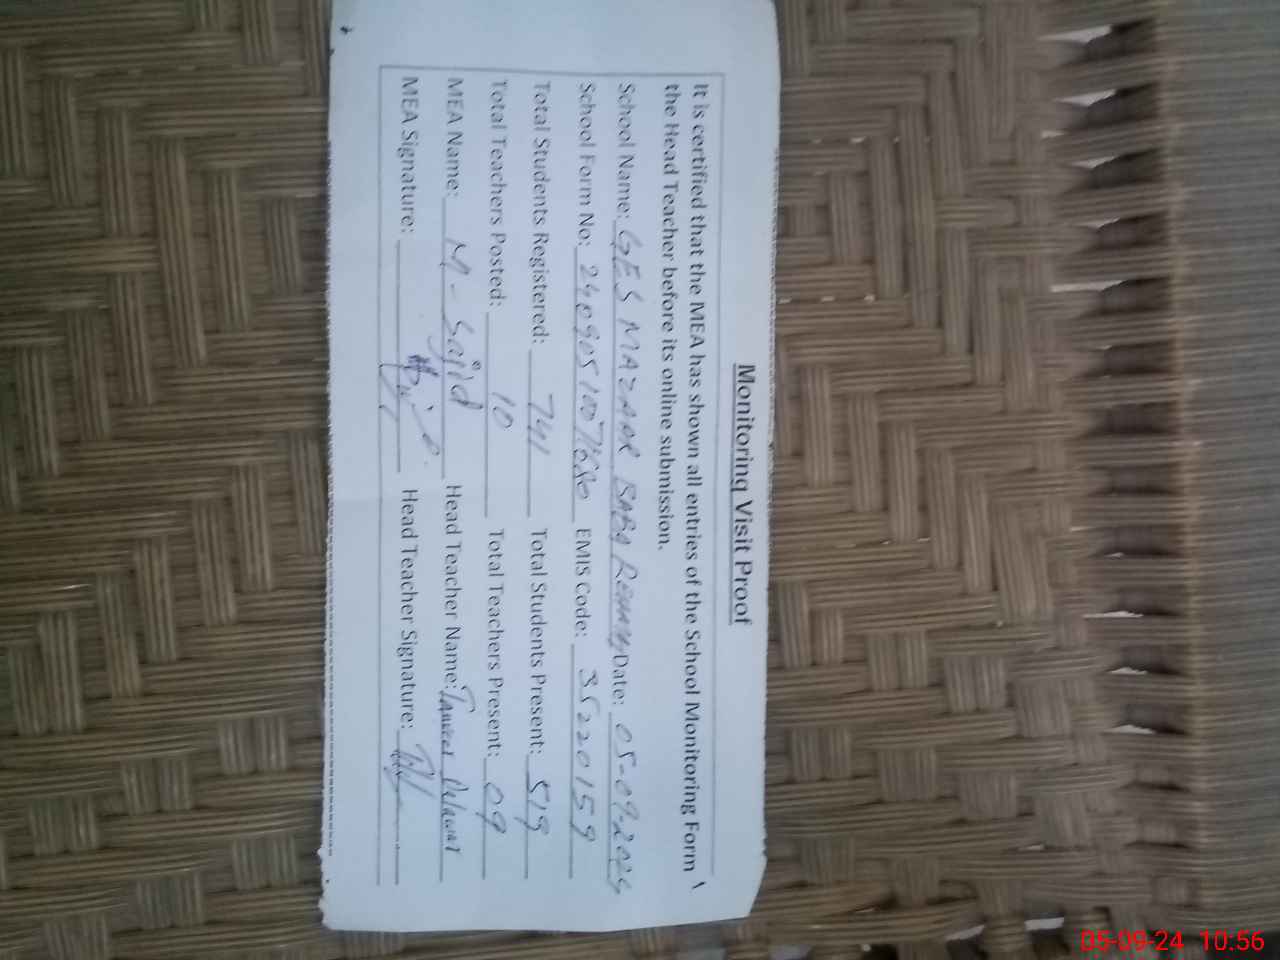 Monitoring Visit Proof
It is certified that the MEA has shown all entries of the School Monitoring Form
the Head Teacher before its online submission.
School Name: GES MAZAAR BABA Date: 05-09-2024
School Form No: EMIS Code: 35220159
Total Students Registered: 741 Total Students Present: 519
Total Teachers Posted: 10 Total Teachers Present: 09
MEA Name: M-Sajid Head Teacher Name: Tanveer Delawar
MEA Signature: Head Teacher Signature:
05-09-24 10:56